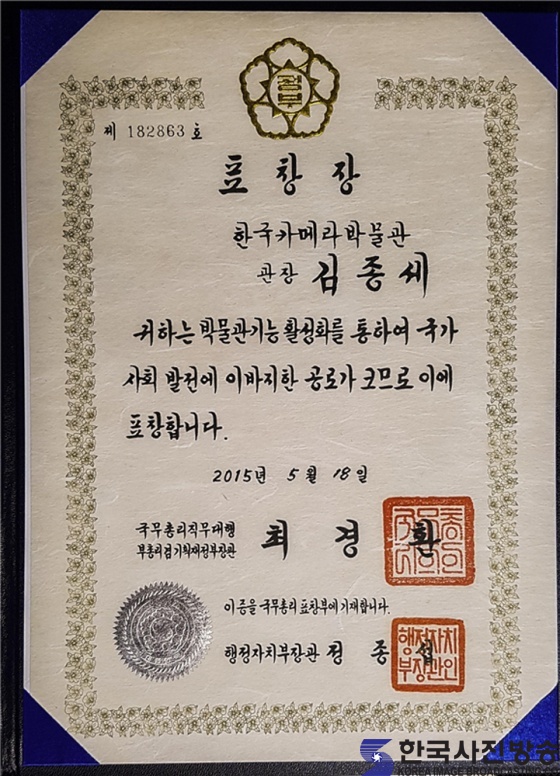 정부
제 182863 호
표창장
한국카메라박물관
관장 김종세
귀하는 박물관기능 활성화를 통하여 국가
사회 발전에 이바지한 공로가 크므로 이에
표창합니다.
2015년 5월 18일
국무총리직무대행
부총리겸기획재정부장관 최경환
이 증을 국무총리 표창부에 기재합니다.
행정자치부장관 정종섭
행정자치
부장관인
한국사진방송
KOREA IMAGE BROADCASTING